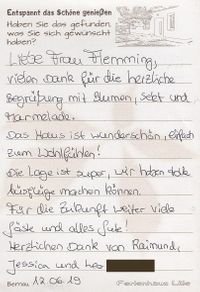 Entspannt das Schöne genießen
Haben Sie das gefunden,
was Sie sich gewünscht
haben?
Liebe Frau Flemming,
vielen Dank für die herzliche
Begrüßung mit Blumen, Sekt und
Marmelade.
Das Haus ist wunderschön, einfach
zum Wohlfühlen!
Die Lage ist super, wir haben tolle
Ausflüge machen können.
Für die Zukunft weiter viele
Gäste und alles Gute!
Herzlichen Dank von Raimund,
Jessica und Leo
Bernau, 12.06.19 Ferienhaus Lilie